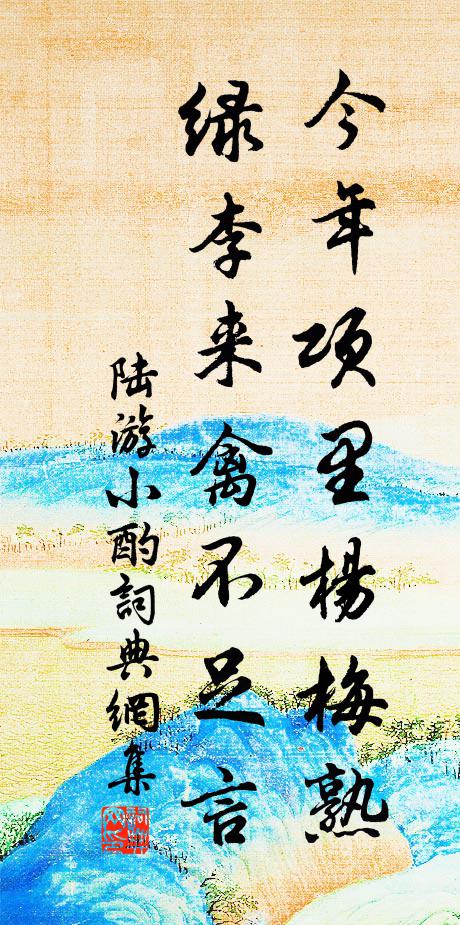 今年項里楊梅熟
緑李来禽不足言
陆游小酌詞典網集